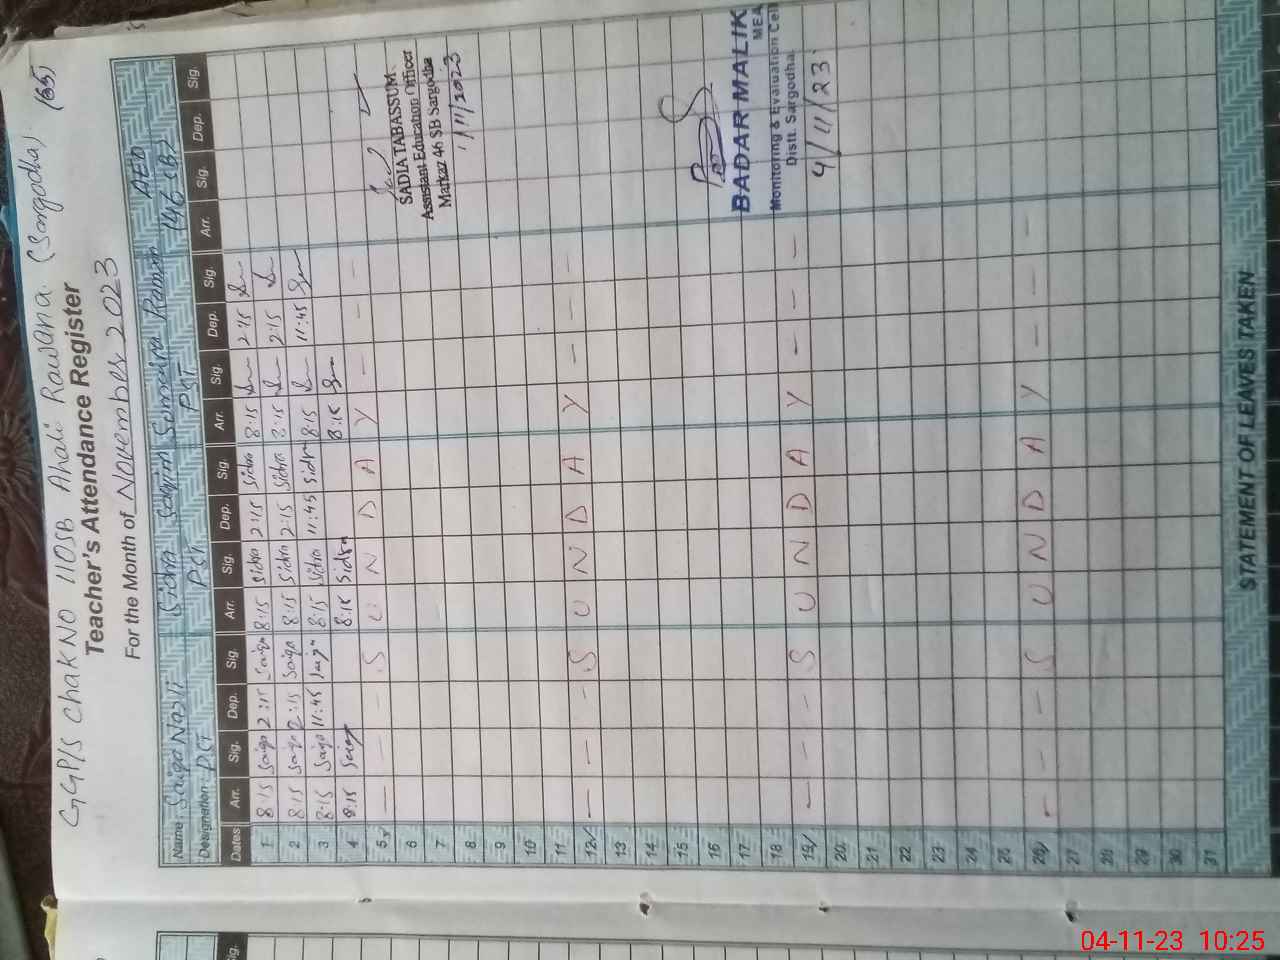 GGP/S Chak NO 110SB Ahali Rawana (Sargodha)
Teacher's Attendance Register
For the Month of November 2023
Name: Saiqa Nazli Sidra Samina Rahman AEO
Designation: PST PST (46 SB)
Dates Arr. Sig. Dep. Sig. Arr. Sig. Dep. Sig. Arr. Sig. Dep. Sig. Arr. Sig. Dep. Sig.
1 8:15 Saiqa 2:15 Saiqa 8:15 Sidra 2:15 Sidra 8:15 2:15
2 8:15 Saiqa 2:15 Saiqa 8:15 Sidra 2:15 Sidra 8:15 2:15
3 8:15 Saiqa 11:45 Saiqa 8:15 Sidra 11:45 Sidra 8:15 11:45
4 8:15 Saiqa 8:15 Sidra 8:15
5 — — — S U N D A Y — — —
6
7
8
9
10
11
12 — — — S U N D A Y — — —
13
14
15
16
17
18
19 — — — S U N D A Y — — —
20
21
22
23
24
25
26 — — — S U N D A Y — — — —
27
28
29
30
31
SADIA TABASSUM
Assistant Education Officer
Markaz 46 SB Sargodha
1/11/2023
BADAR MALIK
MEA
Monitoring & Evaluation Cell
Distt. Sargodha.
4/11/23.
STATEMENT OF LEAVES TAKEN
Sig.
04-11-23 10:25